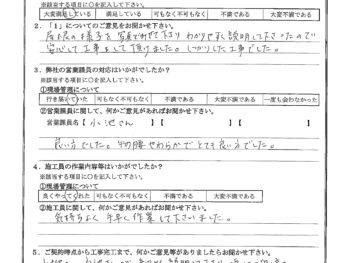 ※該当する項目に○を記入して下さい。
大変満足している 満足している 可もなく不可もなく 不満である 大変不満である
2．「1」についてのご意見をお聞かせ下さい。
屋根の様子を写真で見せて下さり わかりやすく説明して下さったので
安心して工事をして頂けました。しっかりした工事でした。
3．弊社の営業課員の対応はいかがでしたか？
※該当する項目に○を記入して下さい。
①現場管理について
行き届いていた 可もなく不可もなく 不満である 大変不満である 一度も会わなかった
②営業課員に関して、何かご意見があればお聞かせ下さい。
営業課員名【 小池さん 】【 】【 】
良い方でした。物腰やわらかでとても良い方でした。
4．施工員の作業内容等はいかがでしたか？
※該当する項目に○を記入して下さい。
①現場管理について
良くやってくれた 可もなく不可もなく 不満である 大変不満である
②施工員に関して、何かご意見があればお聞かせ下さい。
気持ちよく 手早く作業して下さいました。
5．ご契約時点から工事完工まで、何かご意見等がありましたらお聞かせ下さい。